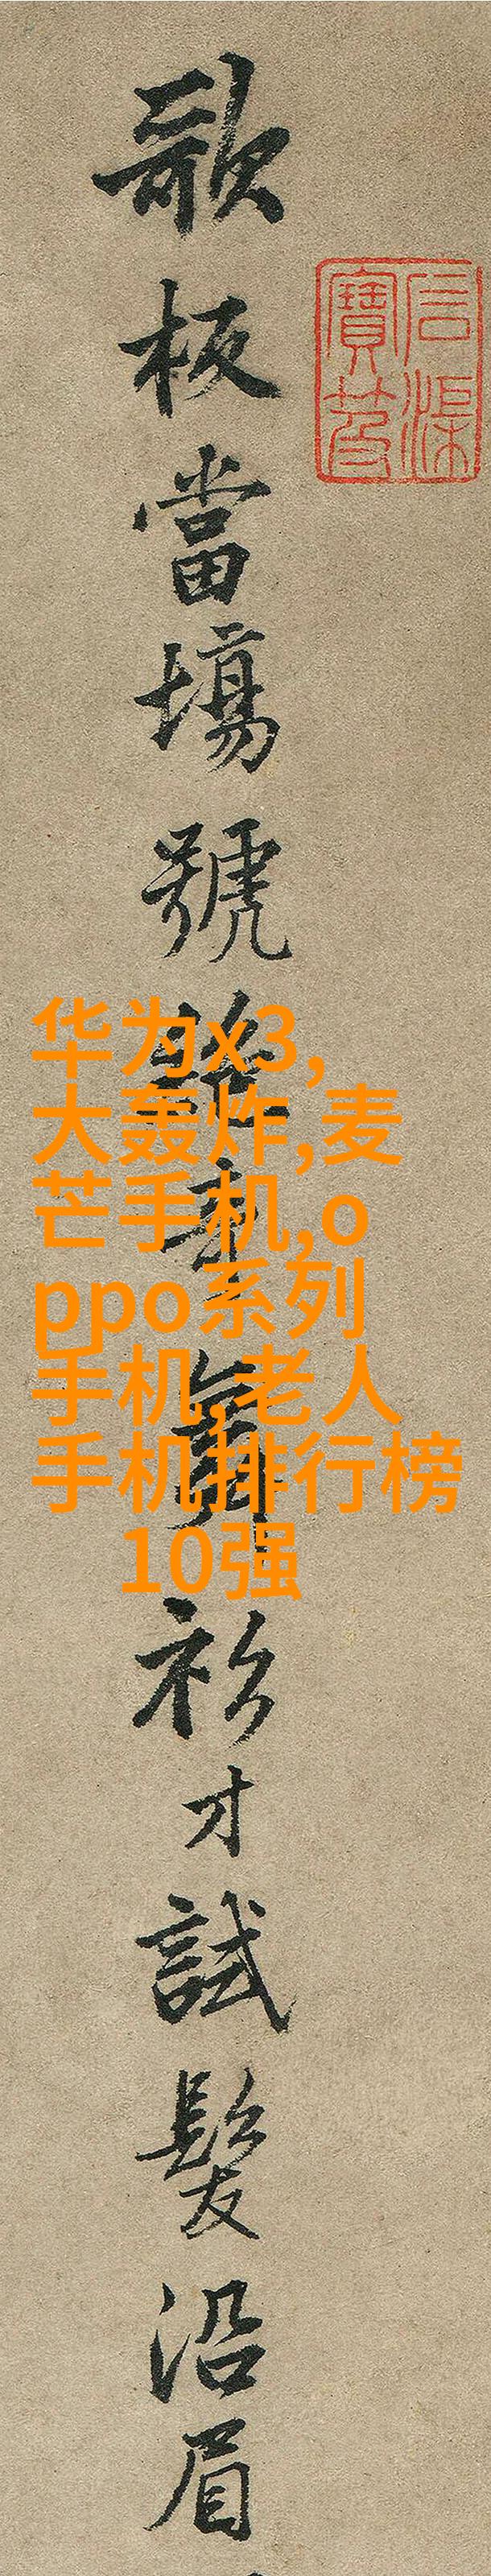 石渠
寶笈
歌板當場號舞衫才試髮沿眉
华为x3,
大轰炸,麦
芒手机,o
ppo系列
手机,老人
手机排行榜
10强